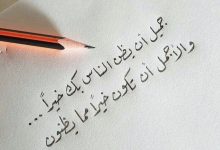 جميل أن يظن الناس بك خيراً ...
والأجمل أن تكون خيراً مما يظنون